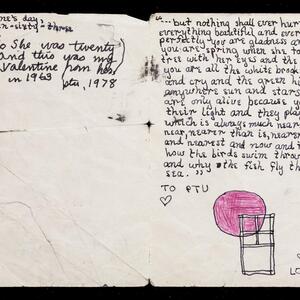 ne's day -
n-sixty-three
So She was twenty
And this was my
Valentine from her
in 1963
ptu, 1978
"...but nothing shall ever hur
everything beautiful and ever
perfectly you are gladness and
you are spring when she to
tree with her eyes and the
you are all the white brook
and cry and the green hi
anywhere sun and stars
are only alive because y
their light and they play
which is always much near
near, nearer than is, neare
and nearest and now and i
how the birds swim throu
and why the fish fly th
sea."
TO PTU
LO